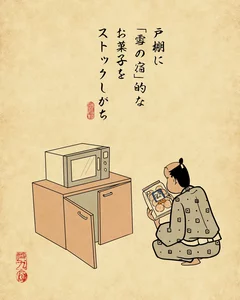 戸棚に
「雪の宿」的な
お菓子を
ストックしがち